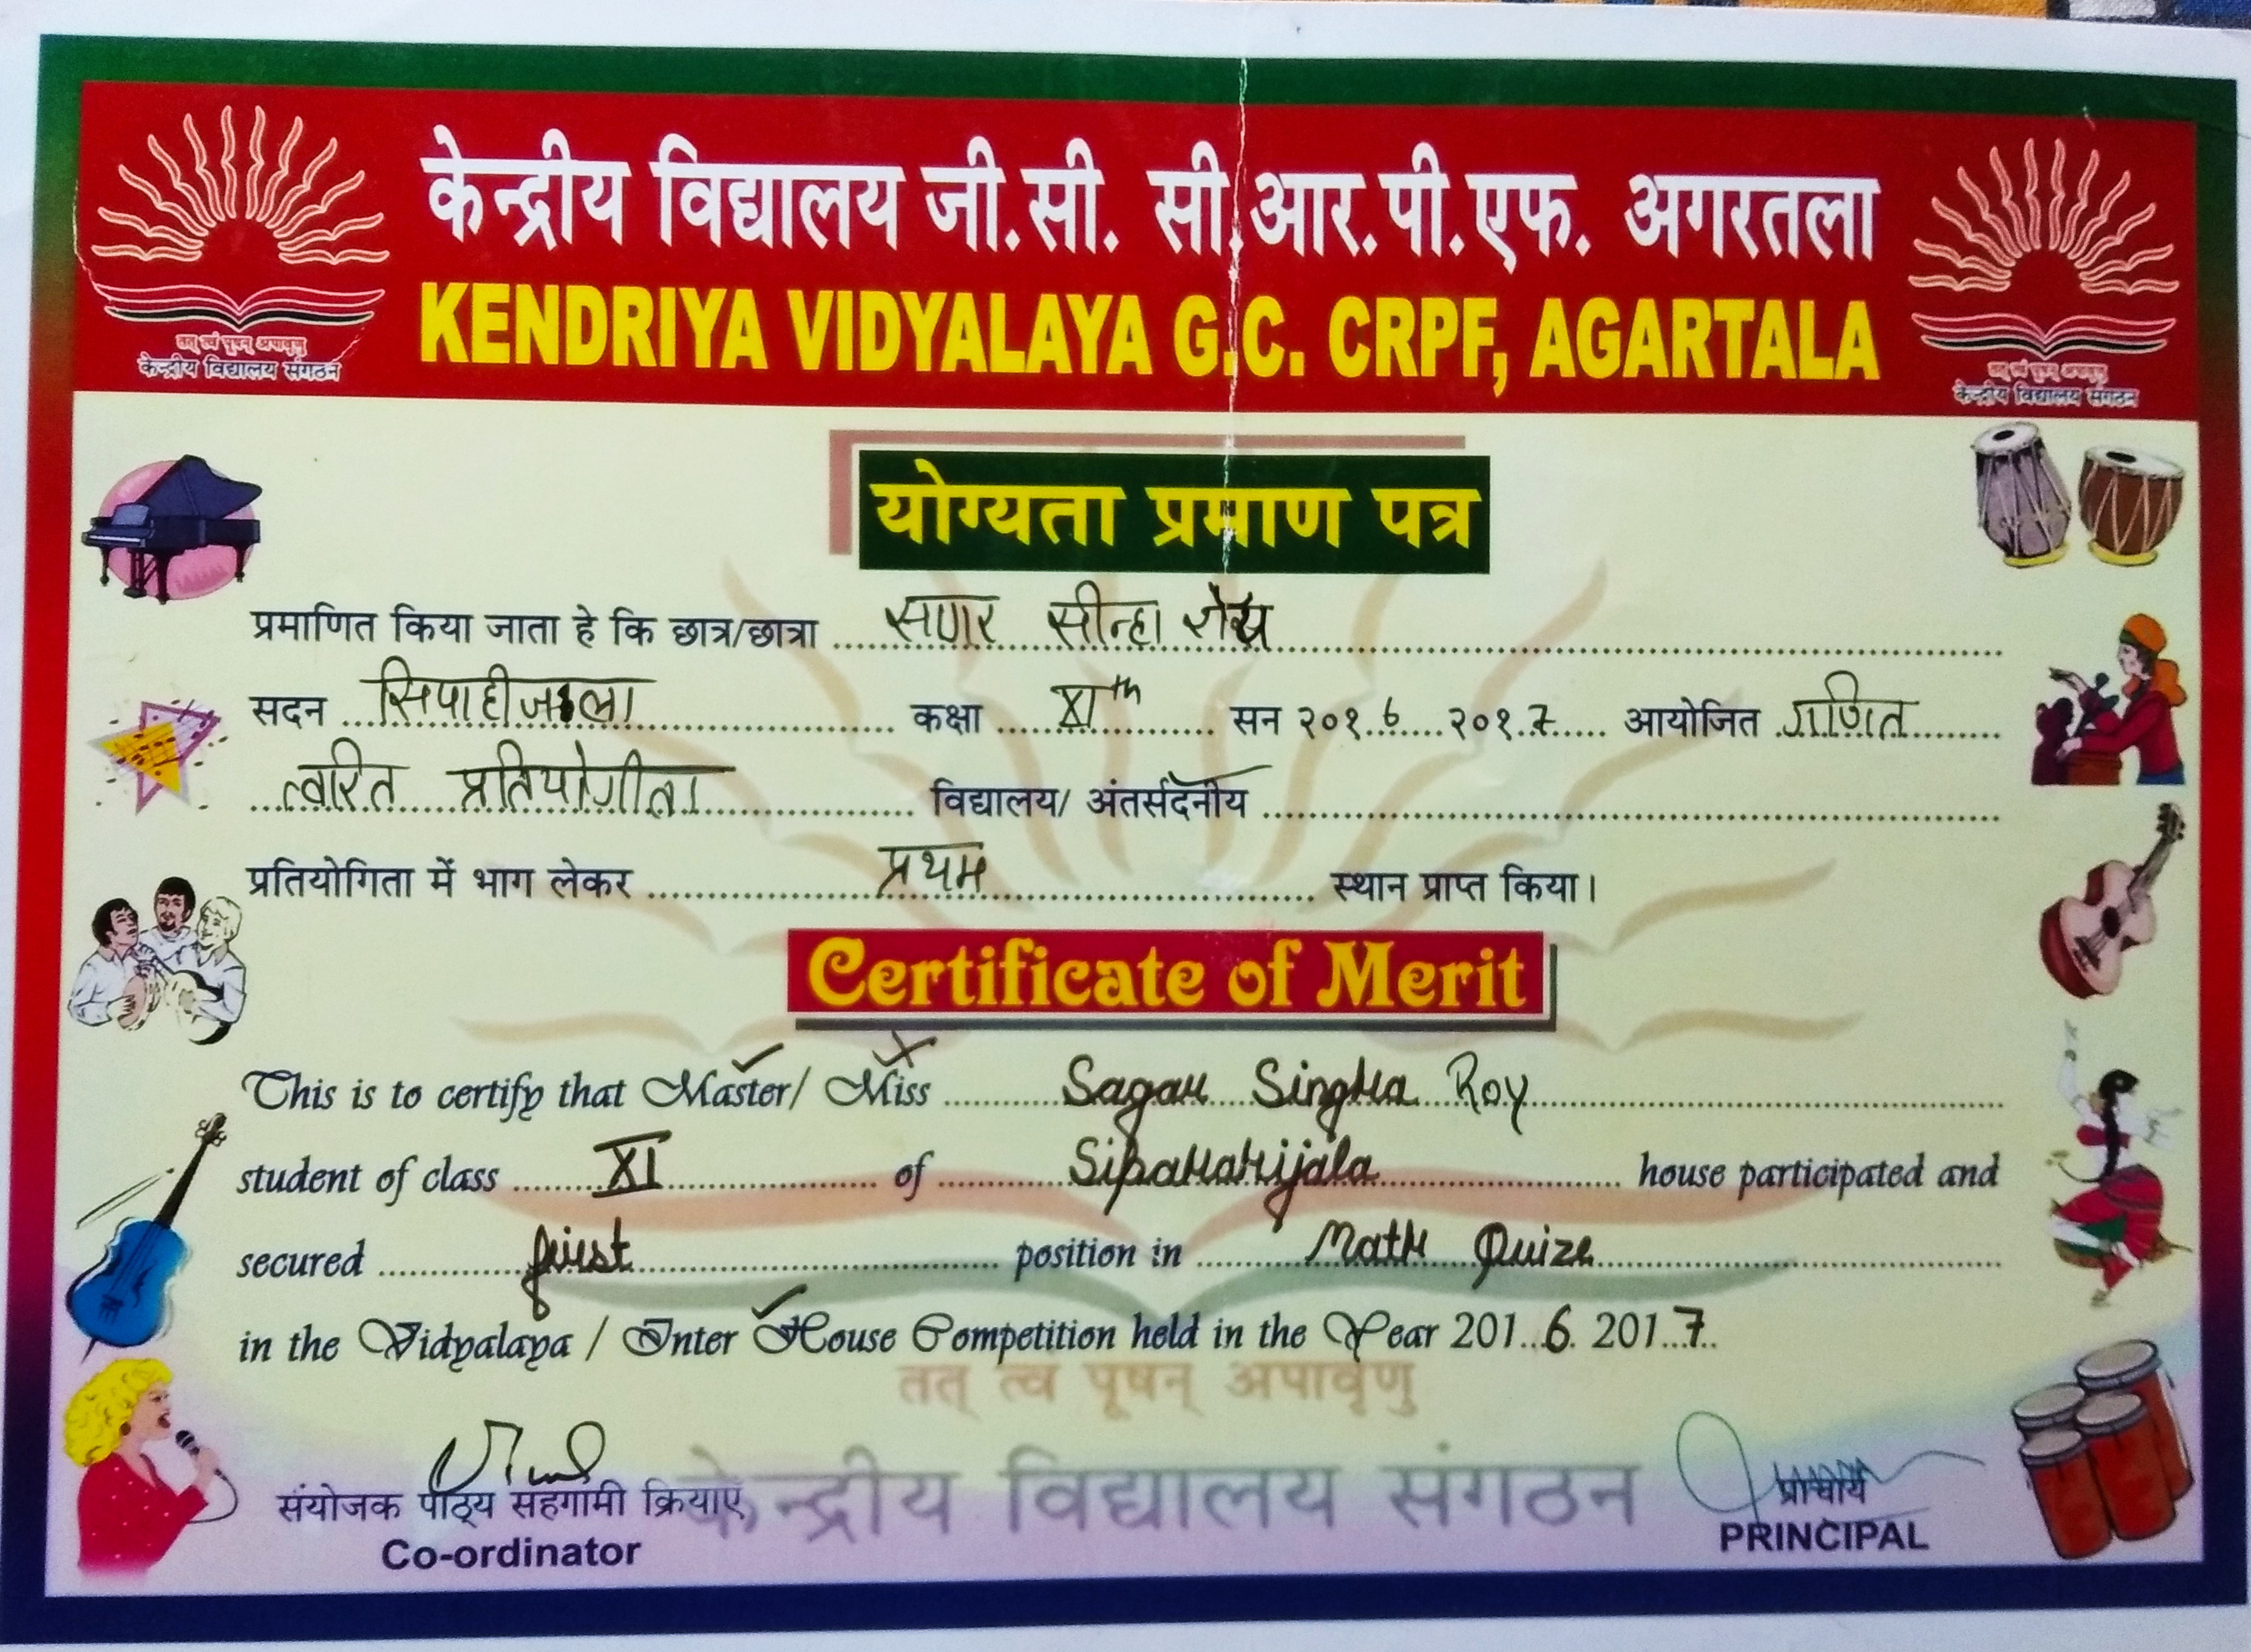 केन्द्रीय विद्यालय जी.सी. सी.आर.पी.एफ. अगरतला
KENDRIYA VIDYALAYA G.C. CRPF, AGARTALA
तत् त्वं पूषन् अपावृणु
केन्द्रीय विद्यालय संगठन
तत् त्वं पूषन् अपावृणु
केन्द्रीय विद्यालय संगठन
योग्यता प्रमाण पत्र
प्रमाणित किया जाता हे कि छात्र/छात्रा सागर सीन्हा
सदन सिपाहीजला कक्षा XIth सन २०१6 २०१7 आयोजित गणित
त्वरित प्रतियोगीता विद्यालय/ अंतर्सदनीय
प्रतियोगिता में भाग लेकर प्रथम स्थान प्राप्त किया।
Certificate of Merit
This is to certify that Master/ Miss Sagar Singha Roy
student of class XI of Sipahahijala house participated and
secured first position in Math Quize
in the Vidyalaya / Inter House Competition held in the Year 2016 2017
तत् त्वं पूषन् अपावृणु
केन्द्रीय विद्यालय संगठन
संयोजक पाठ्य सहगामी क्रियाएं
Co-ordinator
प्राचार्य
PRINCIPAL